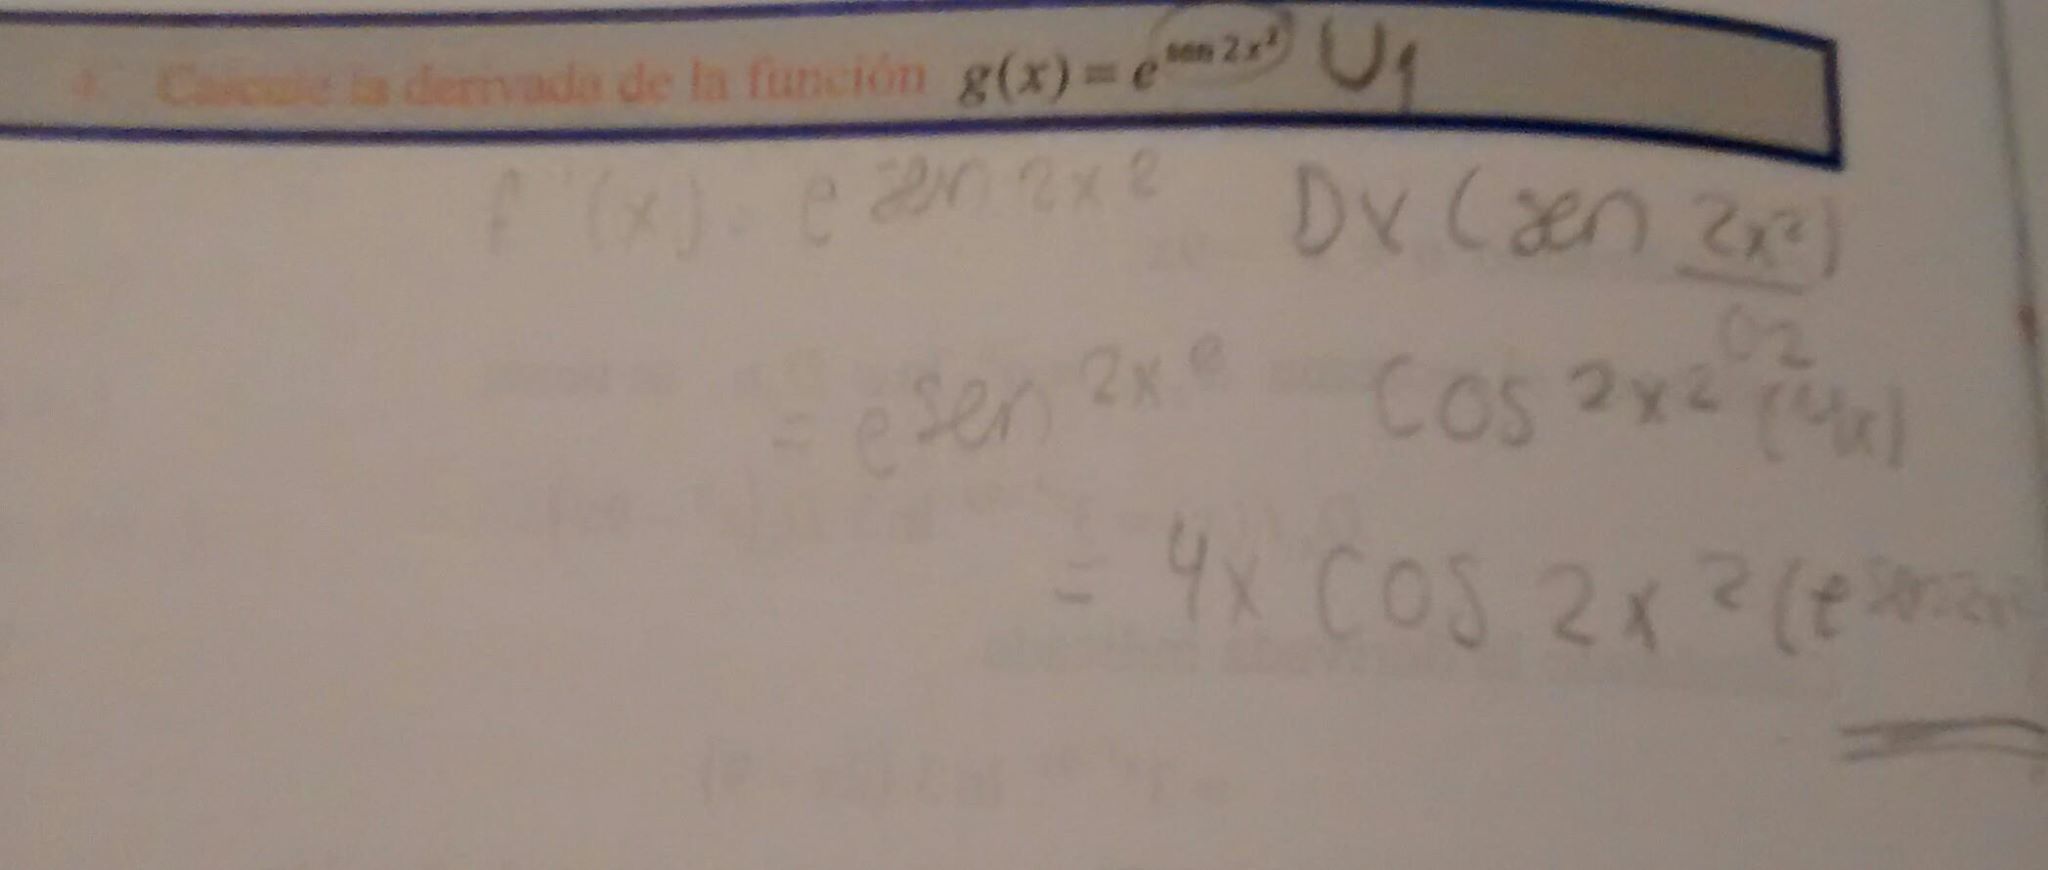 Calcule la derivada de la función g(x) = e^{sen 2x²} U₁
f'(x). e^{sen 2x²} Dx (sen 2x²)
U2
= e^{sen 2x²} Cos 2x² (4x)
= 4x Cos 2x² (e^{sen 2x²}